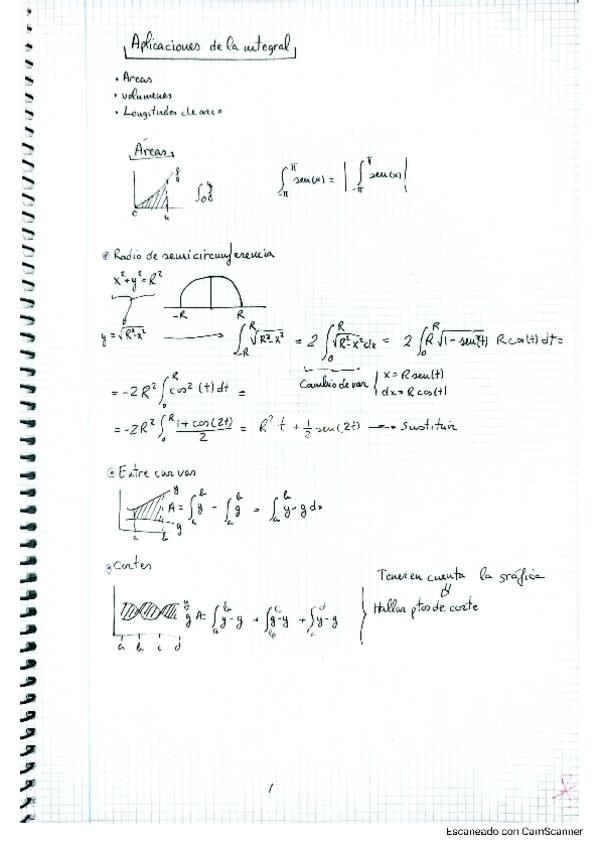 Aplicaciones de la integral
• Areas
• volumenes
• Longitudes de arco
Áreas
∫_{-π}^{π} sen(x) = | ∫_{-π}^{π} sen(x) |
Radio de semicircunferencia
x²+y²=R²
-R R
y = √(R²-x²) → ∫_{-R}^{R} √(R²-x²) = 2 ∫_0^R √(R²-x²) dx = 2 ∫_0^R R √(1-sen²(t)) R cos(t) dt =
Cambio de var { x = R sen(t)
dx = R cos(t)
= -2R² ∫_0^R cos²(t) dt =
= -2R² ∫_0^R (1+cos(2t))/2 = R² t + 1/2 sen(2t) → Sustituir
Entre curvas
y
A = ∫_a^b y - ∫_a^b g = ∫_a^b y-g dx
g
a b
Cortes
Tener en cuenta la gráfica
Hallar ptos de corte
y
g A = ∫_a^b y-g + ∫_b^c g-y + ∫_c^d y-g
a b c d
1
Escaneado con CamScanner